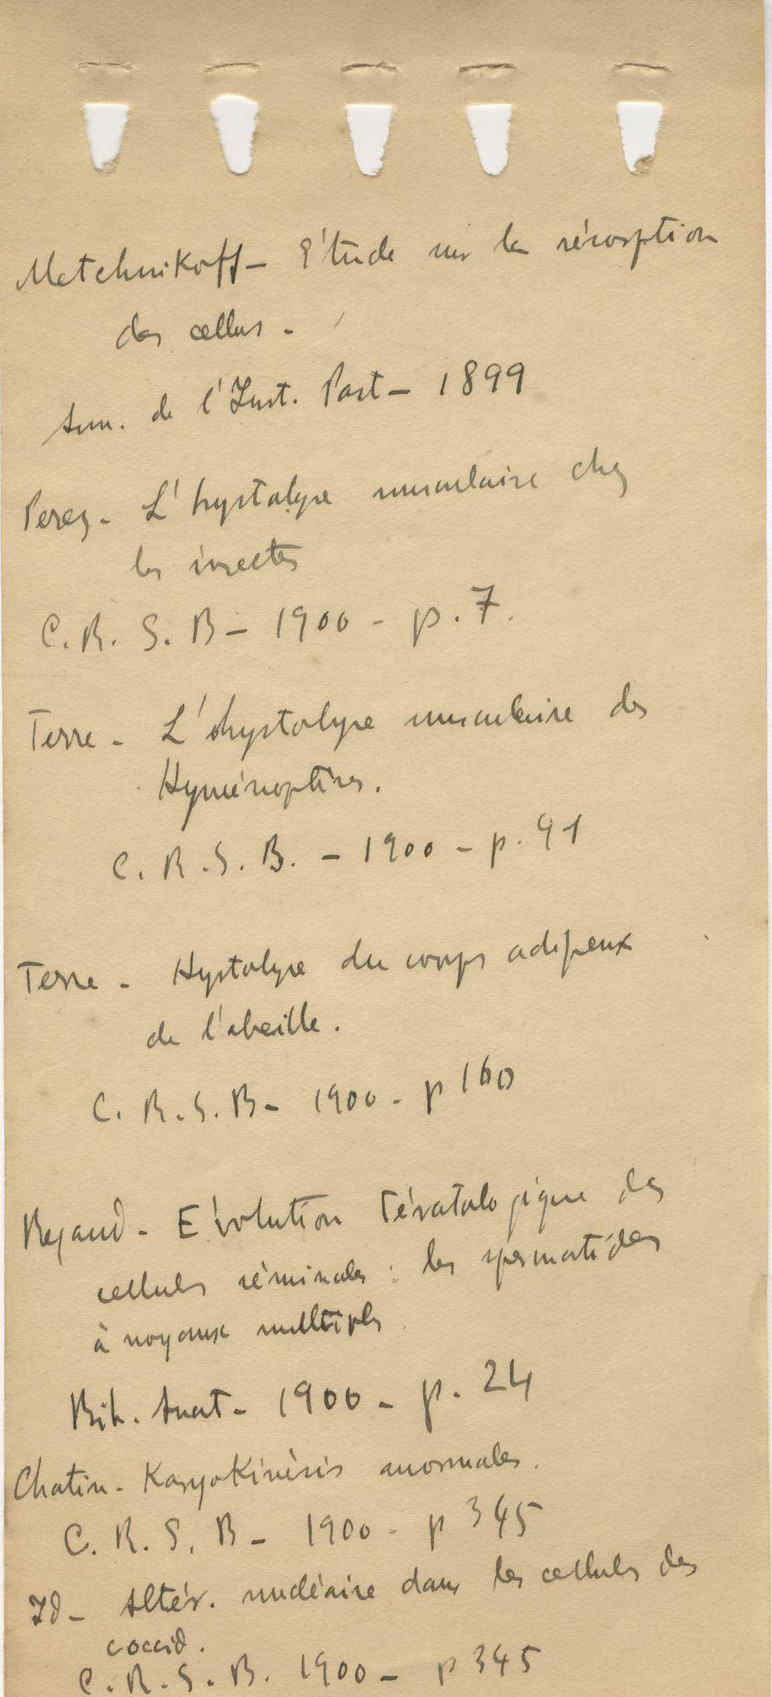 Metchnikoff - Etude sur la résorption
des cellules -
Ann. de l'Inst. Past - 1899
Perez - L'hystolyse musculaire chez
les insectes
C. R. S. B - 1900 - p. 7.
Terre - L'hystolyse musculaire des
Hyménoptères.
C. R. S. B. - 1900 - p. 91
Terre - Hystolyse du corps adipeux
de l'abeille.
C. R. S. B - 1900 - p 160
Regaud - Evolution tératologique des
cellules séminales : les spermatides
à noyaux multiples
Bib. Anat - 1900 - p. 24
Chatin - Karyokinésis anormales.
C. R. S. B - 1900 - p 345
Id - Altér. nucléaire dans les cellules des
coccid.
C. R. S. B. 1900 - p 345